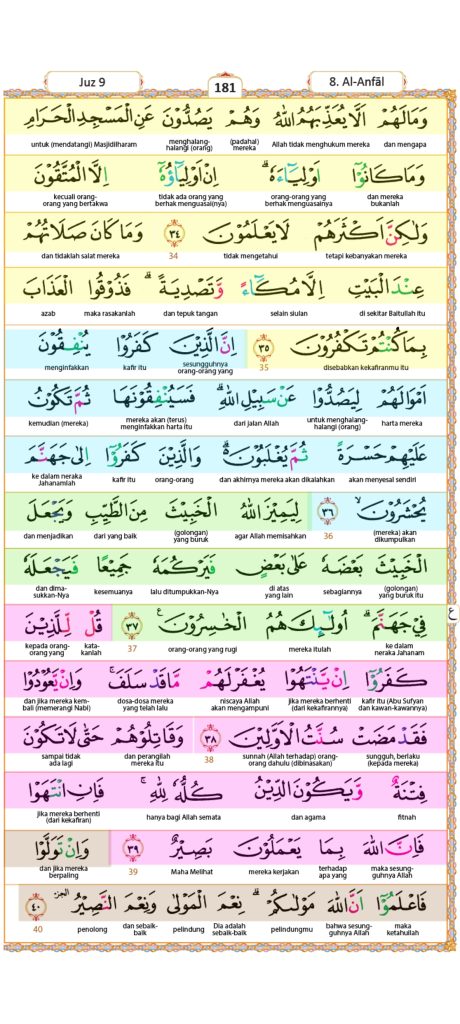 Juz 9
181
8. Al-Anfāl
وَمَا لَهُمْ اَلَّا يُعَذِّبَهُمُ اللّٰهُ وَهُمْ يَصُدُّوْنَ عَنِ الْمَسْجِدِ الْحَرَامِ
dan mengapa Allah tidak menghukum mereka (padahal) mereka menghalang-halangi (orang) untuk (mendatangi) Masjidilharam
وَمَا كَانُوْٓا اَوْلِيَاۤءَهٗۗ اِنْ اَوْلِيَاۤؤُهٗٓ اِلَّا الْمُتَّقُوْنَ
dan mereka bukanlah orang-orang yang berhak menguasainya tidak ada orang yang berhak menguasai(nya) kecuali orang-orang yang bertakwa
وَلٰكِنَّ اَكْثَرَهُمْ لَا يَعْلَمُوْنَ ٣٤ وَمَا كَانَ صَلَاتُهُمْ
tetapi kebanyakan mereka tidak mengetahui 34 dan tidaklah salat mereka
عِنْدَ الْبَيْتِ اِلَّا مُكَاۤءً وَّتَصْدِيَةًۗ فَذُوْقُوا الْعَذَابَ
di sekitar Baitullah itu selain siulan dan tepuk tangan maka rasakanlah azab
بِمَا كُنْتُمْ تَكْفُرُوْنَ ٣٥ اِنَّ الَّذِيْنَ كَفَرُوْا يُنْفِقُوْنَ
disebabkan kekafiranmu itu 35 sesungguhnya orang-orang yang kafir itu menginfakkan
اَمْوَالَهُمْ لِيَصُدُّوْا عَنْ سَبِيْلِ اللّٰهِۗ فَسَيُنْفِقُوْنَهَا ثُمَّ تَكُوْنُ
harta mereka untuk menghalang-halangi (orang) dari jalan Allah mereka akan (terus) menginfakkan harta itu kemudian (mereka)
عَلَيْهِمْ حَسْرَةً ثُمَّ يُغْلَبُوْنَۗ وَالَّذِيْنَ كَفَرُوْٓا اِلٰى جَهَنَّمَ
akan menyesal sendiri dan akhirnya mereka akan dikalahkan orang-orang kafir itu ke dalam neraka Jahanamlah
يُحْشَرُوْنَۙ ٣٦ لِيَمِيْزَ اللّٰهُ الْخَبِيْثَ مِنَ الطَّيِّبِ وَيَجْعَلَ
(mereka) akan dikumpulkan 36 agar Allah memisahkan (golongan) yang buruk dari yang baik dan menjadikan
الْخَبِيْثَ بَعْضَهٗ عَلٰى بَعْضٍ فَيَرْكُمَهٗ جَمِيْعًا فَيَجْعَلَهٗ
(golongan) yang buruk itu sebagiannya di atas yang lain lalu ditumpukkan-Nya kesemuanya dan dima-sukkan-Nya
فِيْ جَهَنَّمَۗ اُولٰۤىِٕكَ هُمُ الْخٰسِرُوْنَࣖ ٣٧ قُلْ لِّلَّذِيْنَ
ع
ke dalam neraka Jahanam mereka itulah orang-orang yang rugi 37 kata-kanlah kepada orang-orang yang
كَفَرُوْٓا اِنْ يَّنْتَهُوْا يُغْفَرْ لَهُمْ مَّا قَدْ سَلَفَۚ وَاِنْ يَّعُوْدُوْا
kafir itu (Abu Sufyan dan kawan-kawannya) jika mereka berhenti (dari kekafirannya) niscaya Allah akan mengampuni dosa-dosa mereka yang telah lalu dan jika mereka kem-bali (memerangi Nabi)
فَقَدْ مَضَتْ سُنَّتُ الْاَوَّلِيْنَ ٣٨ وَقَاتِلُوْهُمْ حَتّٰى لَا تَكُوْنَ
sungguh, berlaku (kepada mereka) sunnah (Allah terhadap) orang-orang dahulu (dibinasakan) 38 dan perangilah mereka itu sampai tidak ada lagi
فِتْنَةٌ وَّيَكُوْنَ الدِّيْنُ كُلُّهٗ لِلّٰهِۚ فَاِنِ انْتَهَوْا
fitnah dan agama hanya bagi Allah semata jika mereka berhenti (dari kekafiran)
فَاِنَّ اللّٰهَ بِمَا يَعْمَلُوْنَ بَصِيْرٌ ٣٩ وَاِنْ تَوَلَّوْا
maka sesung-guhnya Allah terhadap apa yang mereka kerjakan Maha Melihat 39 dan jika mereka berpaling
فَاعْلَمُوْٓا اَنَّ اللّٰهَ مَوْلٰىكُمْۗ نِعْمَ الْمَوْلٰى وَنِعْمَ النَّصِيْرُ ٤٠
maka ketahuilah bahwa sesung-guhnya Allah pelindungmu Dia adalah sebaik-baik pelindung dan sebaik-baik penolong 40